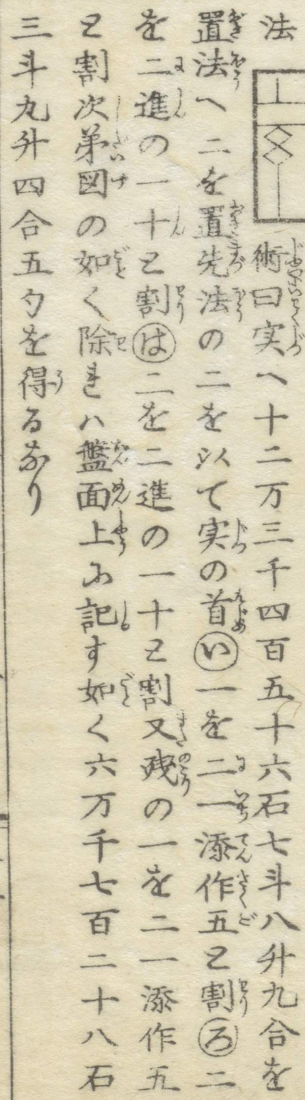 法 術曰実へ十二万三千四百五十六石七斗八升九合を
置法へ二を置先法の二を以て実の首い一を二一添作五と割ろ二
を二進の一十と割は二を二進の一十と割又残の一を二一添作五
と割次第図の如く除れハ盤面上に記す如く六万千七百二十八石
三斗九升四合五勺を得るなり